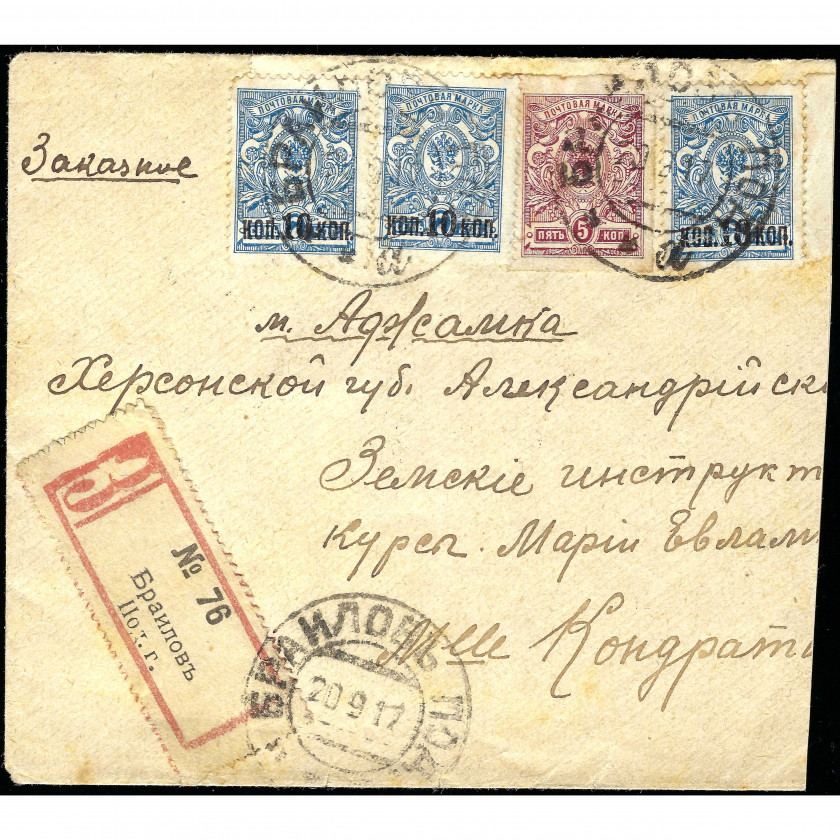 Заказное
ПОЧТОВАЯ МАРКА ПОЧТОВАЯ МАРКА ПОЧТОВАЯ МАРКА ПОЧТОВАЯ МАРКА
коп. 10 коп. коп. 10 коп. ПЯТЬ 5 КОП. коп. 10 коп.
м. Аджамка
Херсонской губ. Александрійск
Земскіе инструкт
курсы. Маріи Евлам
М-lle Кондрат
З
№ 76
Браиловъ
Под. г.
БРАИЛОВЪ ПОД.
20 9 17